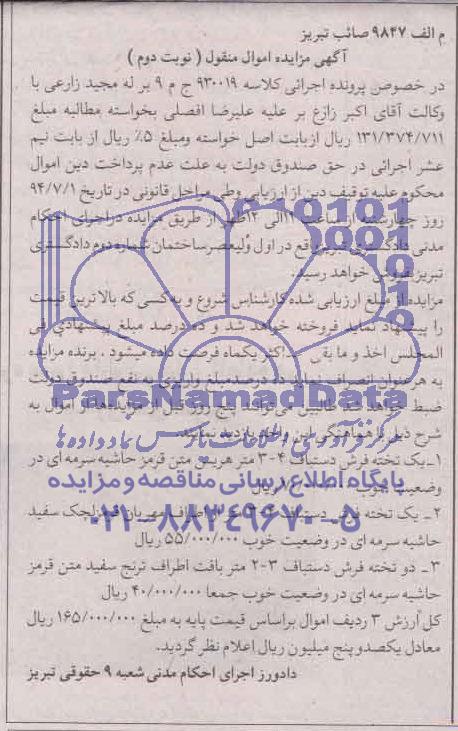 م الف ۹۸۴۷ صائب تبریز
آگهی مزایده اموال منقول ( نوبت دوم )
در خصوص پرونده اجرائی کلاسه ۹۳۰۰۱۹ ج م ۹ بر له مجید زارعی با
وکالت آقای اکبر زارع بر علیه علیرضا افضلی بخواسته مطالبه مبلغ
۱۳۱/۳۷۴/۷۱۱ ریال ازبابت اصل خواسته ومبلغ ۵٪ ریال از بابت نیم
عشر اجرائی در حق صندوق دولت به علت عدم پرداخت دین اموال
محکوم علیه توقیف دین از ارزیابی وطی مراحل قانونی در تاریخ ۹۴/۷/۱
روز چهارشنبه از ساعت ۱۱الی ۱۲ظهر از طریق مزایده دراجرای احکام
مدنی دادگستری تبریز واقع در اول ولیعصرساختمان شماره دوم دادگستری
تبریز بفروش خواهد رسید.
مزایده از مبلغ ارزیابی شده کارشناس شروع و به کسی که بالاترین قیمت
را پیشنهاد نماید فروخته خواهد شد و ده درصد مبلغ پیشنهادی فی
المجلس اخذ و ما بقی حداکثر یکماه فرصت داده میشود . برنده مزایده
به هر عنوان انصراف نماید ده درصدمبلغ واریزی به نفع صندوق دولت
ضبط خواهد شد طالبین می توانند پنج روز قبل از مزایده از اموال به
شرح ذیل با هماهنگی این واحد بازدید نمایند.
۱-یک تخته فرش دستباف ۴-۳ متر هریس متن قرمز حاشیه سرمه ای در
وضعیت خوب ریال
۲- یک تخته فرش دستباف لچک سفید
حاشیه سرمه ای در وضعیت خوب ۵۵/۰۰۰/۰۰۰ ریال
۳- دو تخته فرش دستباف ۳-۲ متر بافت اطراف ترنج سفید متن قرمز
حاشیه سرمه ای در وضعیت خوب جمعا ۴۰/۰۰۰/۰۰۰ ریال
کل ارزش ۳ ردیف اموال براساس قیمت پایه به مبلغ ۱۶۵/۰۰۰/۰۰۰ ریال
معادل یکصدو پنج میلیون ریال اعلام نظر گردید.
دادورز اجرای احکام مدنی شعبه ۹ حقوقی تبریز
ParsNamadData
پایگاه اطلاع رسانی مناقصه و مزایده
۰۲۱-۸۸۳۴۹۶۷۰-۵